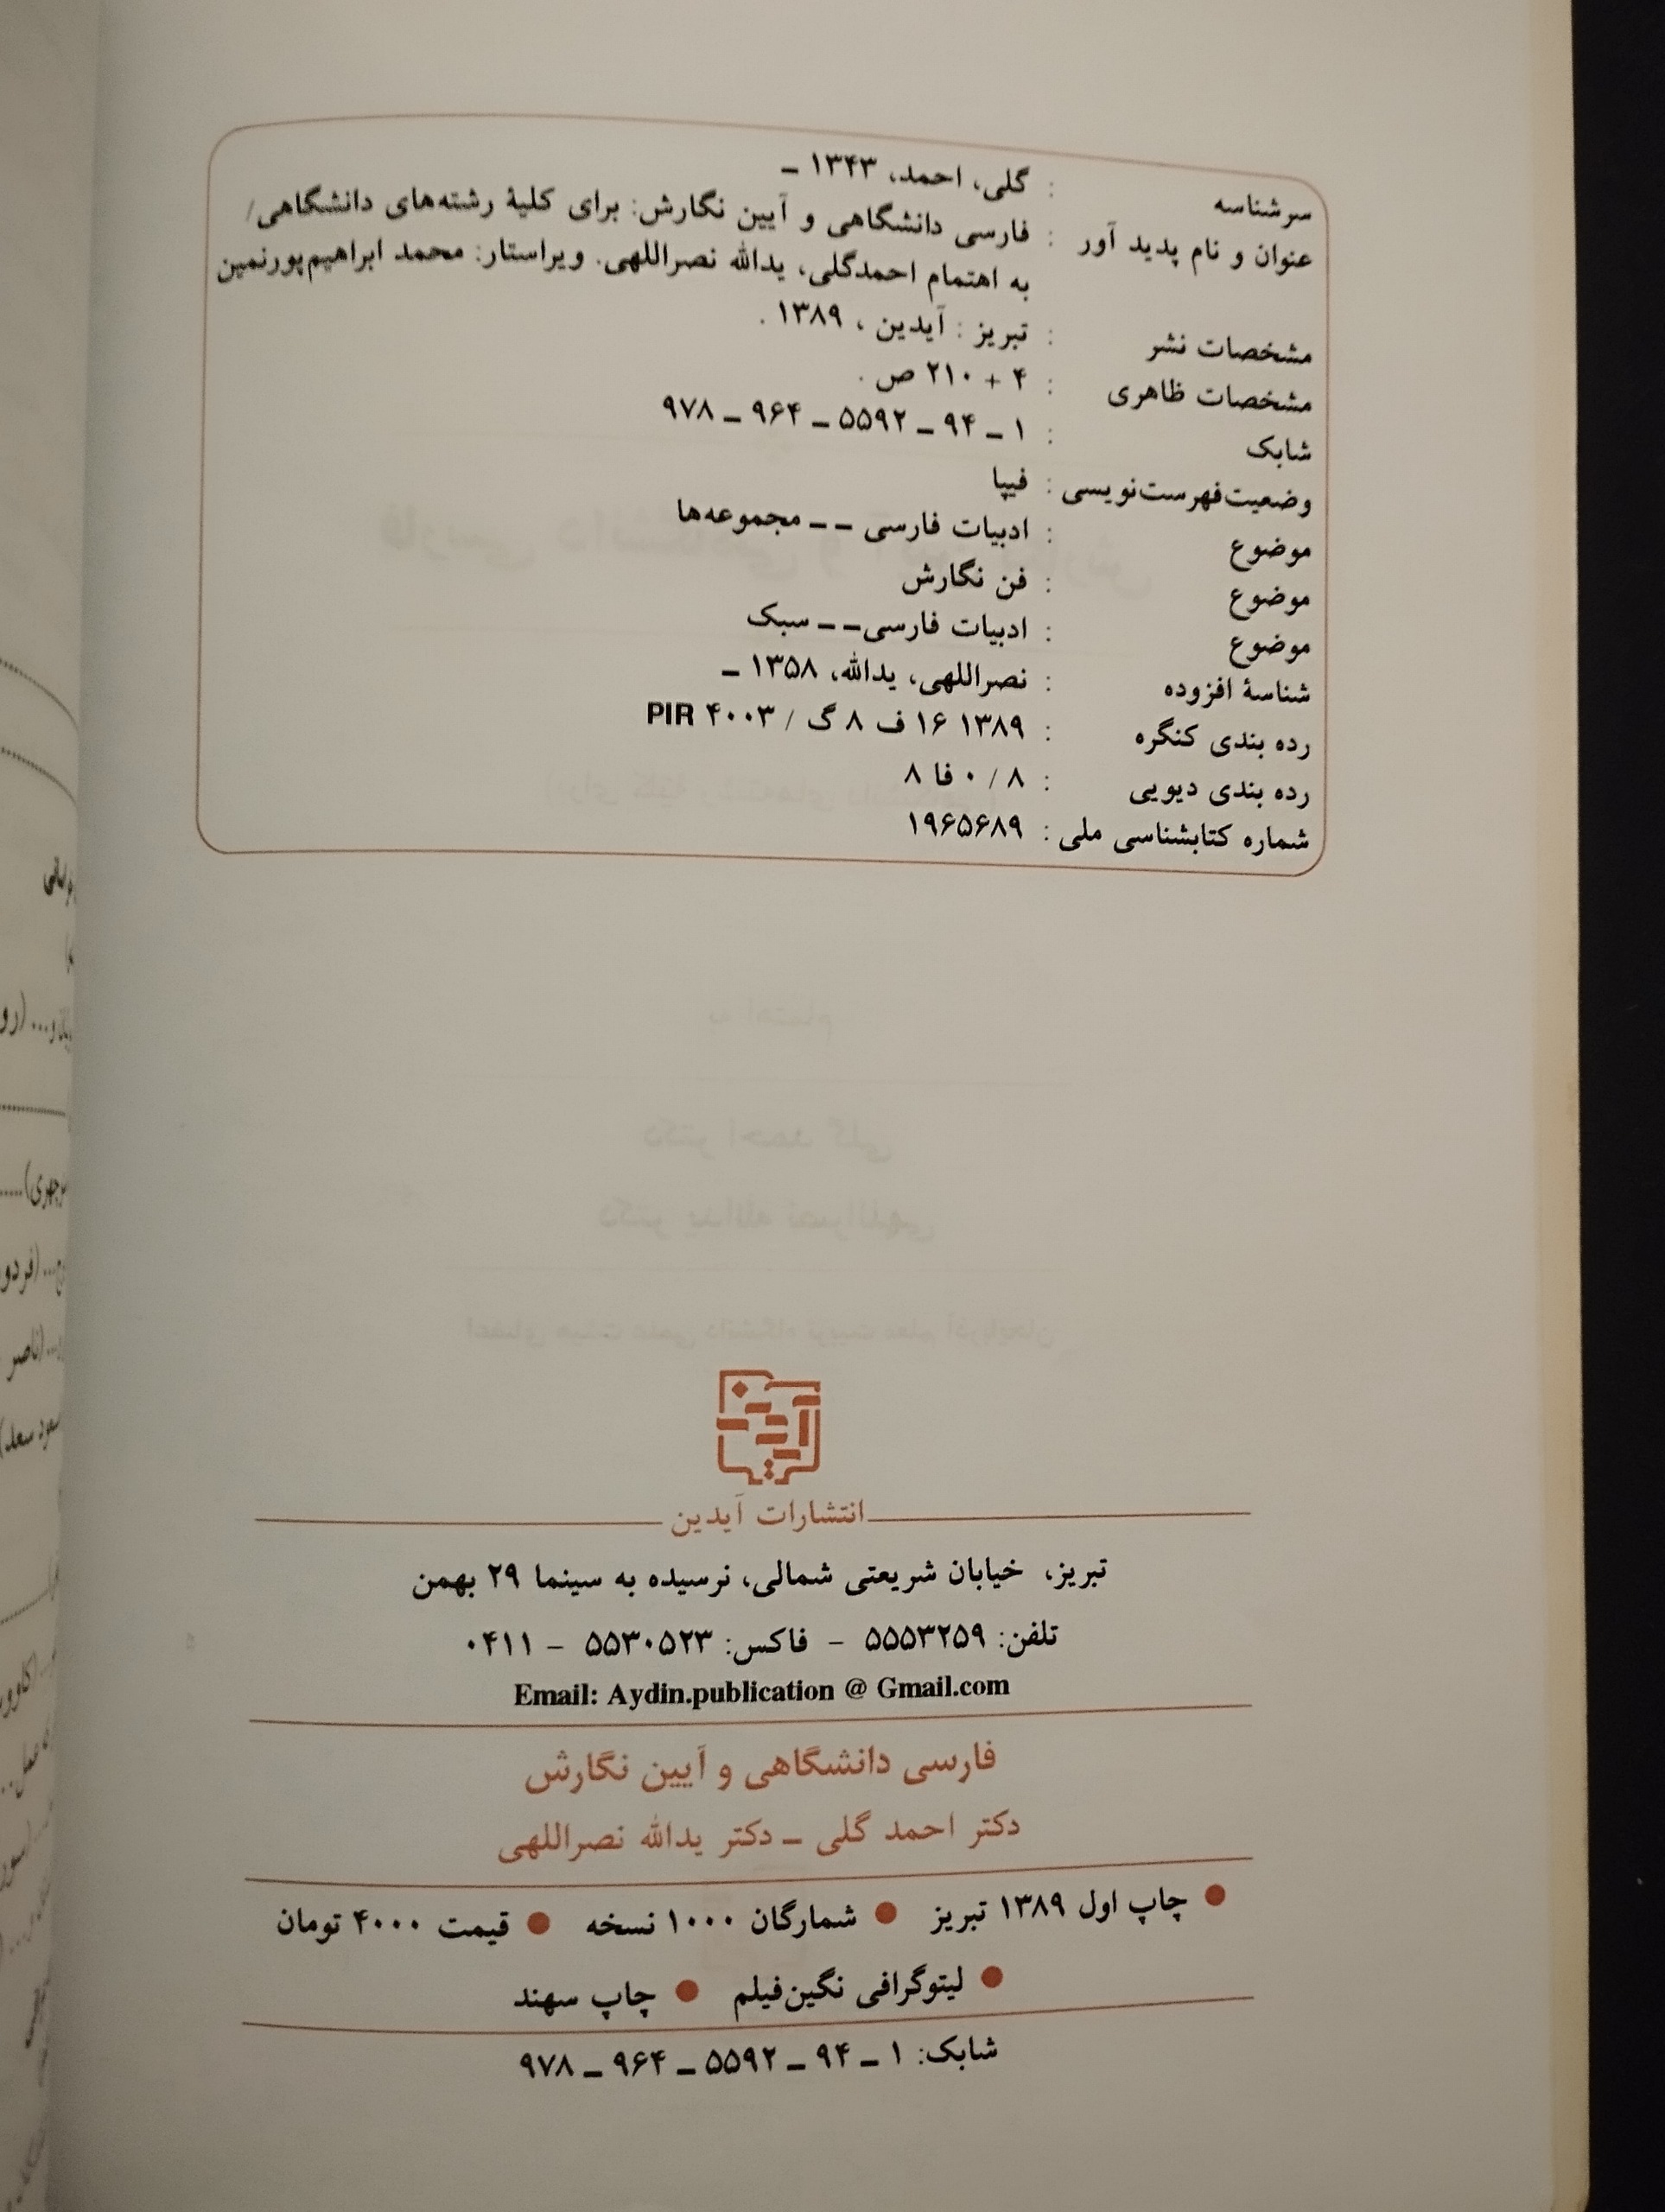 سرشناسه : گلی، احمد، ۱۳۴۳ ـ
عنوان و نام پدید آور : فارسی دانشگاهی و آیین نگارش: برای کلیۀ رشته‌های دانشگاهی/
به اهتمام احمدگلی، یدالله نصراللهی. ویراستار: محمد ابراهیم‌پورنمین
مشخصات نشر : تبریز : آیدین ، ۱۳۸۹ .
مشخصات ظاهری : ۴ + ۲۱۰ ص .
شابک : ۱ ـ ۹۴ ـ ۵۵۹۲ ـ ۹۶۴ ـ ۹۷۸
وضعیت‌فهرست‌نویسی : فیپا
موضوع : ادبیات فارسی ـ ـ مجموعه‌ها
موضوع : فن نگارش
موضوع : ادبیات فارسی ـ ـ سبک
شناسۀ افزوده : نصراللهی، یدالله، ۱۳۵۸ ـ
رده بندی کنگره : ۱۳۸۹ ۱۶ ف ۸ گ / ۴۰۰۳ PIR
رده بندی دیویی : ۸ / ۰ فا ۸
شماره کتابشناسی ملی : ۱۹۶۵۶۸۹
انتشارات آیدین
تبریز، خیابان شریعتی شمالی، نرسیده به سینما ۲۹ بهمن
تلفن: ۵۵۵۳۲۵۹ – فاکس: ۵۵۳۰۵۲۳ – ۰۴۱۱
Email: Aydin.publication @ Gmail.com
فارسی دانشگاهی و آیین نگارش
دکتر احمد گلی ـ دکتر یدالله نصراللهی
● چاپ اول ۱۳۸۹ تبریز ● شمارگان ۱۰۰۰ نسخه ● قیمت ۴۰۰۰ تومان
● لیتوگرافی نگین‌فیلم ● چاپ سهند
شابک: ۱ ـ ۹۴ ـ ۵۵۹۲ ـ ۹۶۴ ـ ۹۷۸